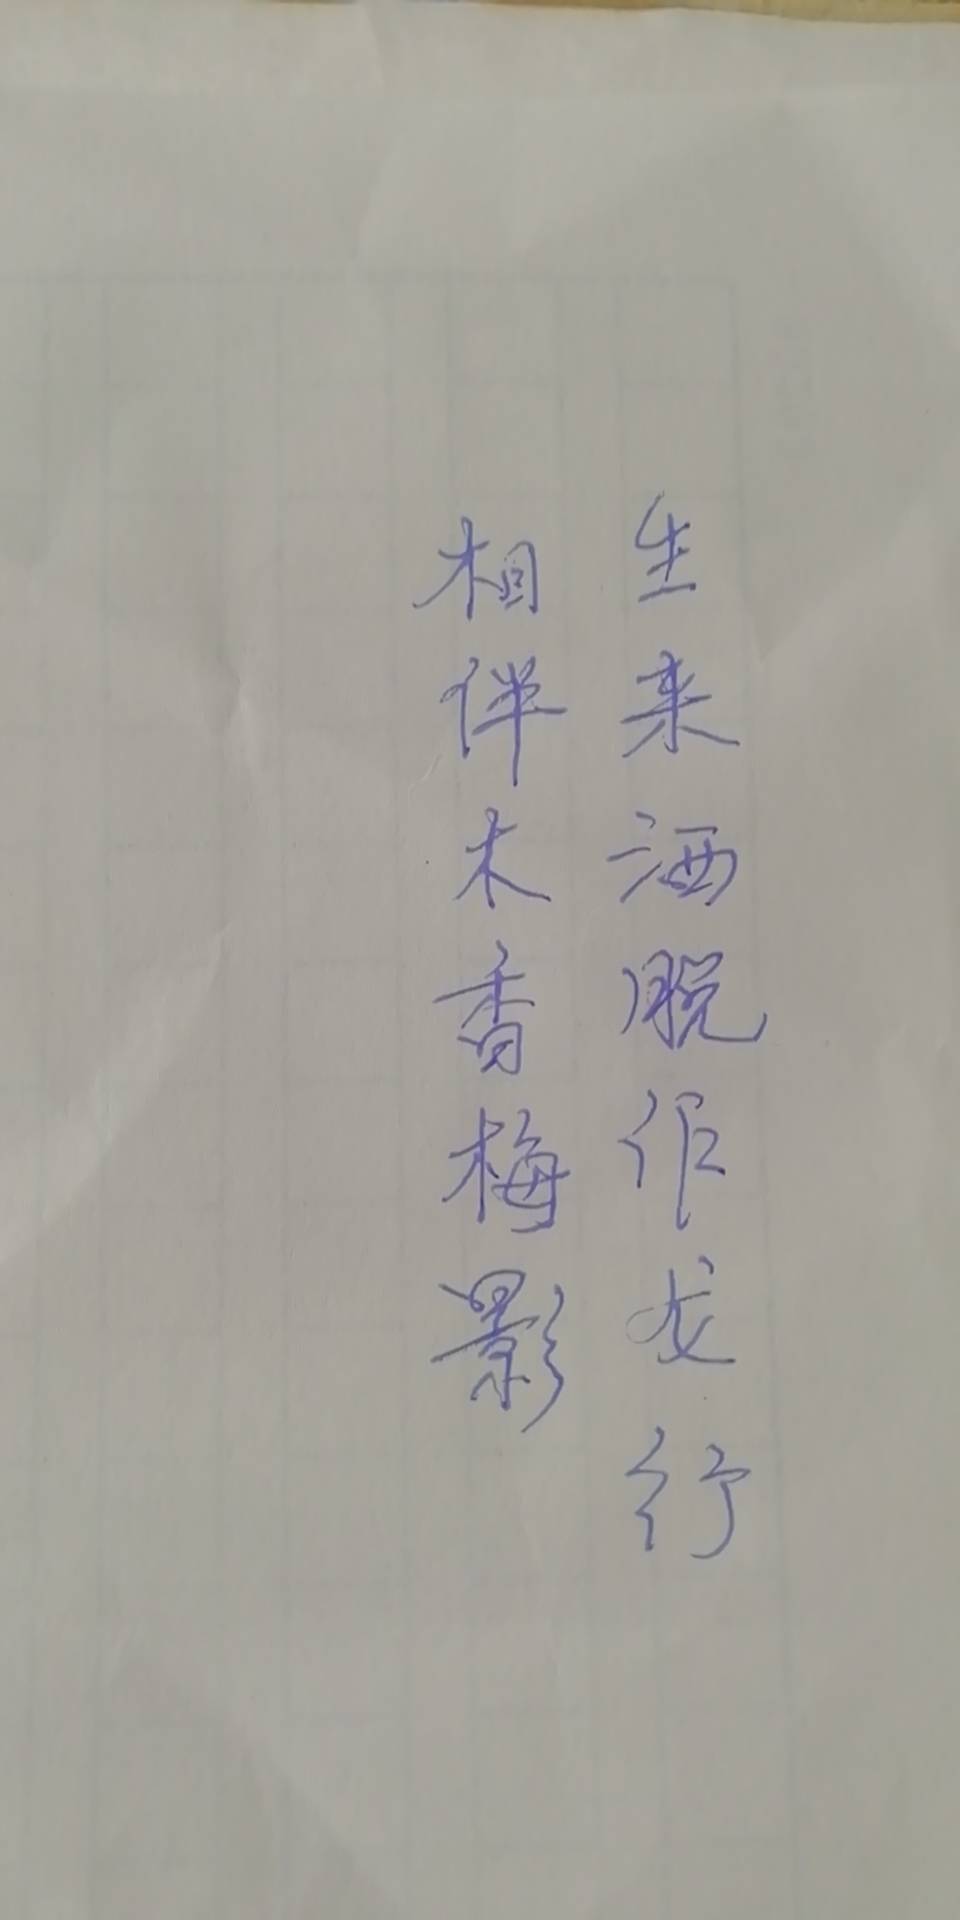 生来洒脱作龙行
相伴木香梅影